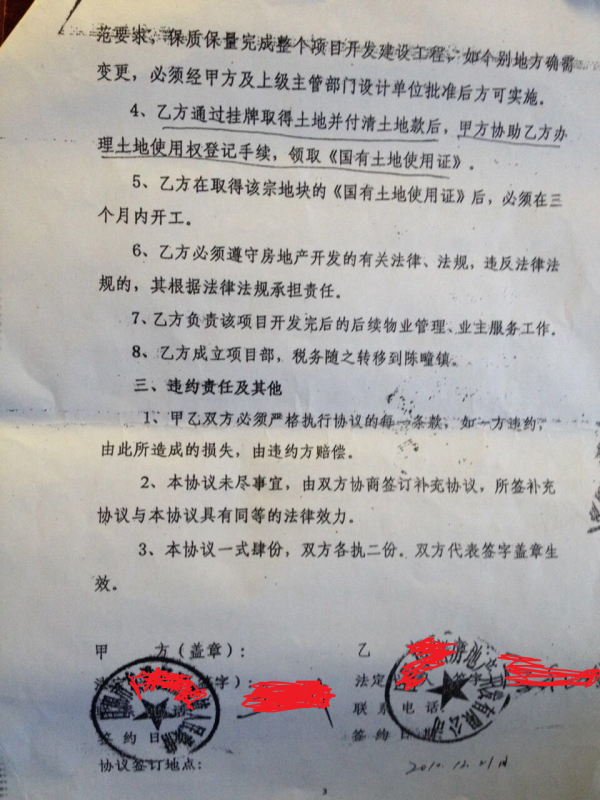 范要求，保质保量完成整个项目开发建设工程，如个别地方确需
变更，必须经甲方及上级主管部门设计单位批准后方可实施。
4、乙方通过挂牌取得土地并付清土地款后，甲方协助乙方办
理土地使用权登记手续，领取《国有土地使用证》。
5、乙方在取得该宗地块的《国有土地使用证》后，必须在三
个月内开工。
6、乙方必须遵守房地产开发的有关法律、法规，违反法律法
规的，其根据法律法规承担责任。
7、乙方负责该项目开发完后的后续物业管理、业主服务工作。
8、乙方成立项目部，税务随之转移到陈疃镇。
三、违约责任及其他
1、甲乙双方必须严格执行协议的每一条款，如一方违约，
由此所造成的损失，由违约方赔偿。
2、本协议未尽事宜，由双方协商签订补充协议，所签补充
协议与本协议具有同等的法律效力。
3、本协议一式肆份，双方各执二份。双方代表签字盖章生
效。
甲 方（盖章）：
乙
签字）：
法定 人
联系电话
签约日
签约日期
协议签订地点：
2010.12.21日
3